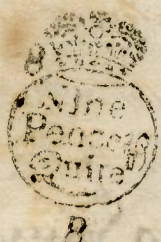 Nine
Pence
Quire